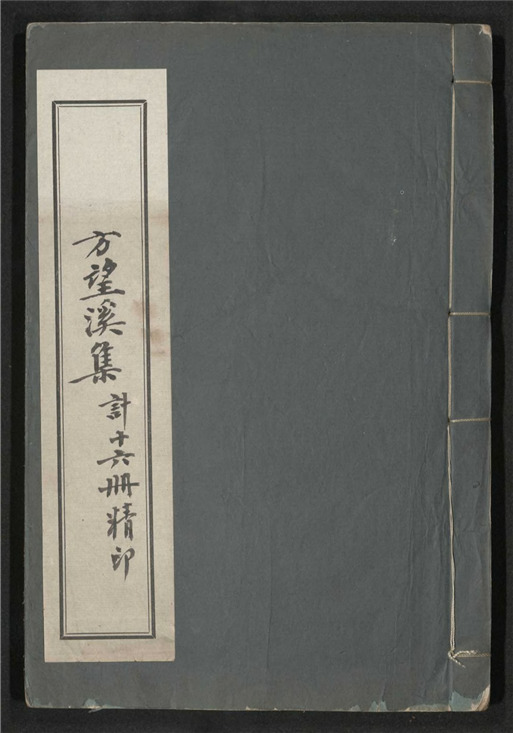 方望溪集 計十六冊精印